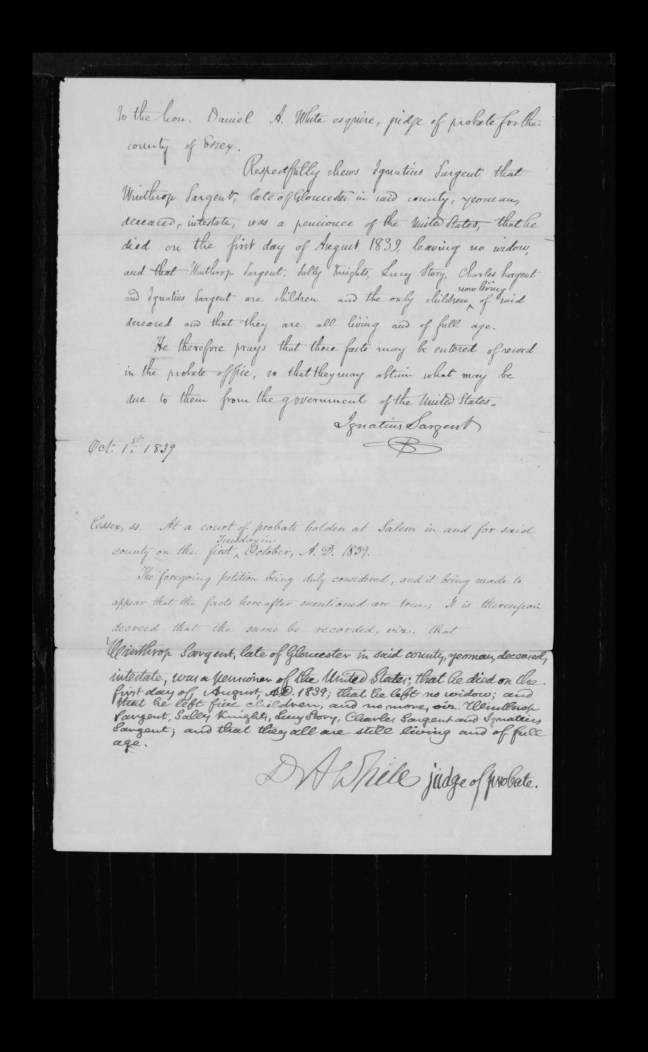 To the hon. Daniel A. White esquire, judge of probate for the
county of Essex.
Respectfully shews Ignatius Sargent that
Winthrop Sargent, late of Gloucester in said county, yeoman,
deceased, intestate, was a pensioner of the United States, that he
died on the first day of August 1839, leaving no widow,
and that Winthrop Sargent, Sally Knights, Lucy Story, Charles Sargent
now living
and Ignatius Sargent are children and the only children ‸ of said
deceased and that they are all living and of full age.
He therefore prays that these facts may be entered of record
in the probate office, so that they may obtain what may be
due to them from the government of the United States.
Ignatius Sargent
Oct. 1st 1839
Essex, ss. At a court of probate holden at Salem in and for said
Tuesday in
county on the first ‸ October, A. D. 1839.
The foregoing petition being duly considered, and it being made to
appear that the facts hereafter mentioned are true; It is thereupon
decreed that the same be recorded, viz. that
Winthrop Sargent, late of Gloucester in said county, yeoman, deceased,
intestate, was a pensioner of the United States; that he died on the
first day of August, A.D. 1839; that he left no widow; and
that he left five children, and no more, viz. Winthrop
Sargent, Sally Knights, Lucy Story, Charles Sargent and Ignatius
Sargent; and that they all are still living and of full
age.
D A White judge of probate.